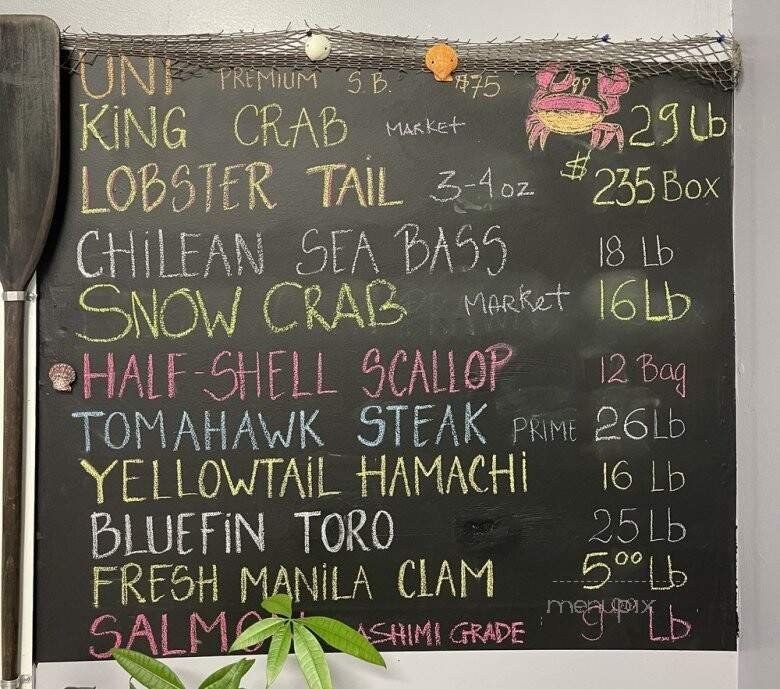 UNI PREMIUM S.B. 175
KiNG CRAB MARKET 29 Lb
LOBSTER TAiL 3-4oz $235 Box
CHiLEAN SEA BASS 18 Lb
SNOW CRAB MARKET 16 Lb
HALF-SHELL SCALLOP 12 Bag
TOMAHAWK STEAK PRIME 26 Lb
YELLOWTAiL HAMACHi 16 Lb
BLUEFiN TORO 25 Lb
FRESH MANiLA CLAM 5⁰⁰ Lb
menupix
SALMON ASHIMI GRADE 9 Lb